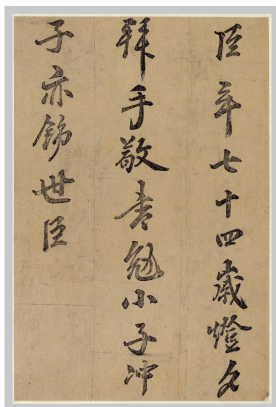 臣年七十四歲燈夕
拜手敬書勉小子冲
子亦錦世臣